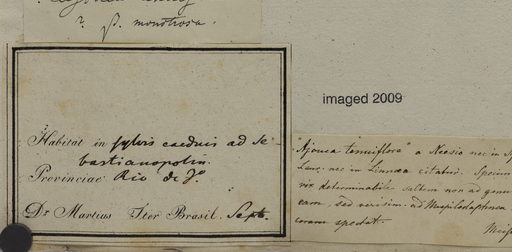 ? β. monstrosa.
Habitat in sylvis caeduis ad Se
bastianopolin
Provinciae Rio de J.º
Dr. Martius Iter Brasil. Sept.
imaged 2009
"Ajouea tenuiflora" a Neesio nec in
nec in Linnaea citatur.
vix determinabile saltem non ad genu
eam, sed verisim. ad Mespilodaphnea
coram spectat.